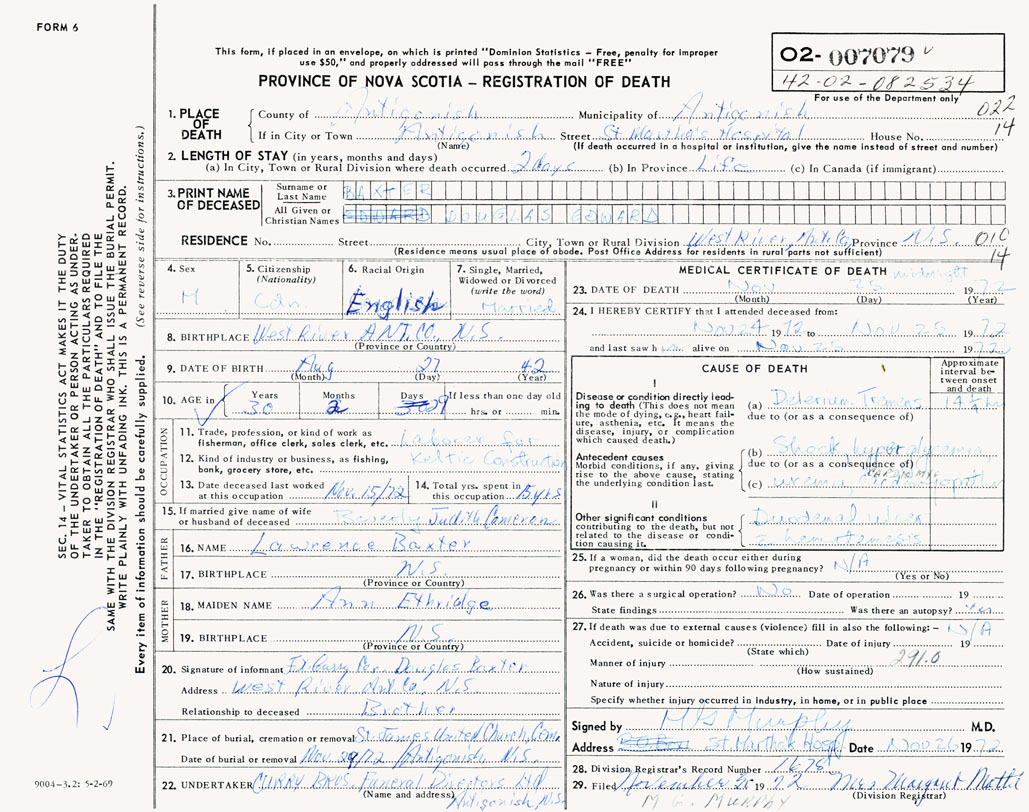 FORM 6
This form, if placed in an envelope, on which is printed "Dominion Statistics – Free, penalty for improper
use $50," and properly addressed will pass through the mail "FREE"
PROVINCE OF NOVA SCOTIA – REGISTRATION OF DEATH
02- 007079
42-02-082534
For use of the Department only
022
14
1. PLACE OF DEATH
County of Antigonish Municipality of Antigonish
If in City or Town Antigonish Street St Martha's Hospital House No.
(Name) (If death occurred in a hospital or institution, give the name instead of street and number)
2. LENGTH OF STAY (in years, months and days)
(a) In City, Town or Rural Division where death occurred 2 days (b) In Province Life (c) In Canada (if immigrant)
3. PRINT NAME OF DECEASED
Surname or Last Name BAXTER
All Given or Christian Names EDWARD DOUGLAS EDWARD
RESIDENCE No. Street City, Town or Rural Division West River, Ant. Co, Province N.S.
(Residence means usual place of abode. Post Office Address for residents in rural parts not sufficient)
010
14
4. Sex
M
5. Citizenship
(Nationality)
Cdn.
6. Racial Origin
English
7. Single, Married,
Widowed or Divorced
(write the word)
Married
8. BIRTHPLACE West River ANT. CO, N.S.
(Province or Country)
9. DATE OF BIRTH Aug 27 42
(Month) (Day) (Year)
10. AGE in Years Months Days If less than one day old
30 2 29 hrs. or min.
OCCUPATION
11. Trade, profession, or kind of work as Laborer for
fisherman, office clerk, sales clerk, etc.
12. Kind of industry or business, as fishing, Keltic Construction
bank, grocery store, etc.
13. Date deceased last worked
at this occupation Nov. 15/72
14. Total yrs. spent in
this occupation 15 yrs
15. If married give name of wife
or husband of deceased Beverly Judith Cameron
FATHER
16. NAME Lawrence Baxter
17. BIRTHPLACE N.S.
(Province or Country)
MOTHER
18. MAIDEN NAME Ann Ethridge
19. BIRTHPLACE N.S.
(Province or Country)
20. Signature of informant Douglas Baxter
Address West River Ant. Co, N.S
Relationship to deceased Brother
21. Place of burial, cremation or removal St. James United Church, Cem.
Date of burial or removal Nov. 29/72 Antigonish N.S.
22. UNDERTAKER CURRY BROS. Funeral Directors Ltd
(Name and address) Antigonish, N.S.
MEDICAL CERTIFICATE OF DEATH midnight
23. DATE OF DEATH Nov 25 1972
(Month) (Day) (Year)
24. I HEREBY CERTIFY that I attended deceased from:
Nov 24 1972 to Nov 25 1972
and last saw h alive on Nov. 25 1972
CAUSE OF DEATH
Approximate interval between onset and death
I
Disease or condition directly leading to death (This does not
mean the mode of dying, e.g., heart failure, asthenia, etc. It means the
disease, injury, or complication
which caused death.)
(a) Delerium Tremens
due to (or as a consequence of)
Antecedent causes
Morbid conditions, if any, giving
rise to the above cause, stating
the underlying condition last.
(b) Shock hypoglycemia
due to (or as a consequence of)
(c) uremia,
II
Other significant conditions
contributing to the death, but not
related to the disease or condition causing it.
Duodenal ulcer
hemotemesis
25. If a woman, did the death occur either during
pregnancy or within 90 days following pregnancy? N/A
(Yes or No)
26. Was there a surgical operation? No Date of operation 19
State findings Was there an autopsy? Yes
27. If death was due to external causes (violence) fill in also the following: – N/A
Accident, suicide or homicide? Date of injury 19
(State which)
Manner of injury 291.0
(How sustained)
Nature of injury
Specify whether injury occurred in industry, in home, or in public place
Signed by M G Murphy M.D.
Address St. Martha's Hosp Date Nov 26 1972
28. Division Registrar's Record Number 1676
29. Filed November 1972 Mrs Margaret
(Division Registrar)
M. G. MURPHY
SEC. 14 – VITAL STATISTICS ACT MAKES IT THE DUTY
OF THE UNDERTAKER OR PERSON ACTING AS UNDERTAKER TO OBTAIN ALL THE PARTICULARS REQUIRED
IN THE "REGISTRATION OF DEATH" AND TO FILE THE
SAME WITH THE DIVISION REGISTRAR WHO SHALL ISSUE THE BURIAL PERMIT.
WRITE PLAINLY WITH UNFADING INK. THIS IS A PERMANENT RECORD.
Every item of information should be carefully supplied. (See reverse side for instructions.)
9004-3.2: 5-2-69